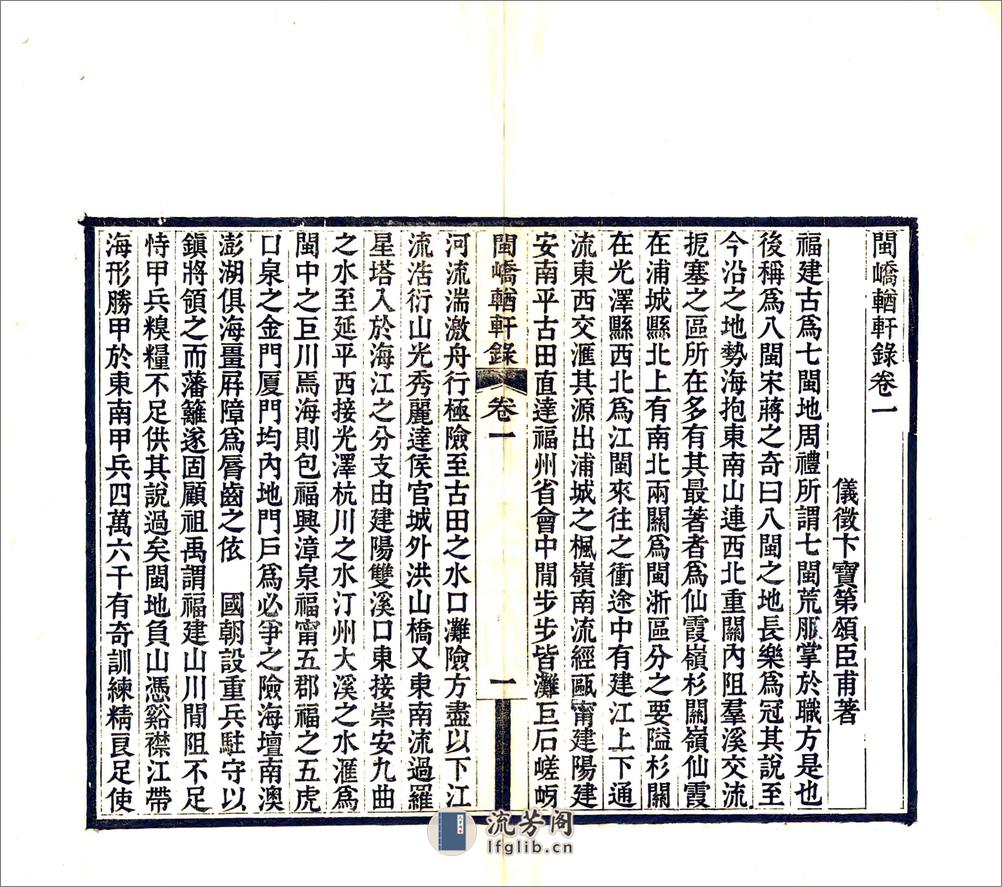 閩嶠輶軒錄卷一
儀徵卞寶第頌臣甫著
福建古爲七閩地周禮所謂七閩荒服掌於職方是也
後稱爲八閩宋蔣之奇曰八閩之地長樂爲冠其說至
今沿之地勢海抱東南山連西北重關內阻羣溪交流
扼塞之區所在多有其最著者爲仙霞嶺杉關嶺仙霞
在浦城縣北上有南北兩關爲閩浙區分之要隘杉關
在光澤縣西北爲江閩來往之衝途中有建江上下通
流東西交滙其源出浦城之楓嶺南流經甌甯建陽建
安南平古田直達福州省會中閒步步皆灘巨石嵯岈
閩嶠輶軒錄 卷一 一
河流湍激舟行極險至古田之水口灘險方盡以下江
流浩衍山光秀麗達侯官城外洪山橋又東南流過羅
星塔入於海江之分支由建陽雙溪口東接崇安九曲
之水至延平西接光澤杭川之水汀州大溪之水滙爲
閩中之巨川焉海則包福興漳泉福甯五郡福之五虎
口泉之金門厦門均內地門戶爲必爭之險海壇南澳
澎湖俱海畺屛障爲脣齒之依 國朝設重兵駐守以
鎮將領之而藩籬遂固顧祖禹謂福建山川閒阻不足
恃甲兵糗糧不足供其說過矣閩地負山憑谿襟江帶
海形勝甲於東南甲兵四萬六千有奇訓練精良足使
流芳阁
lfglib.cn